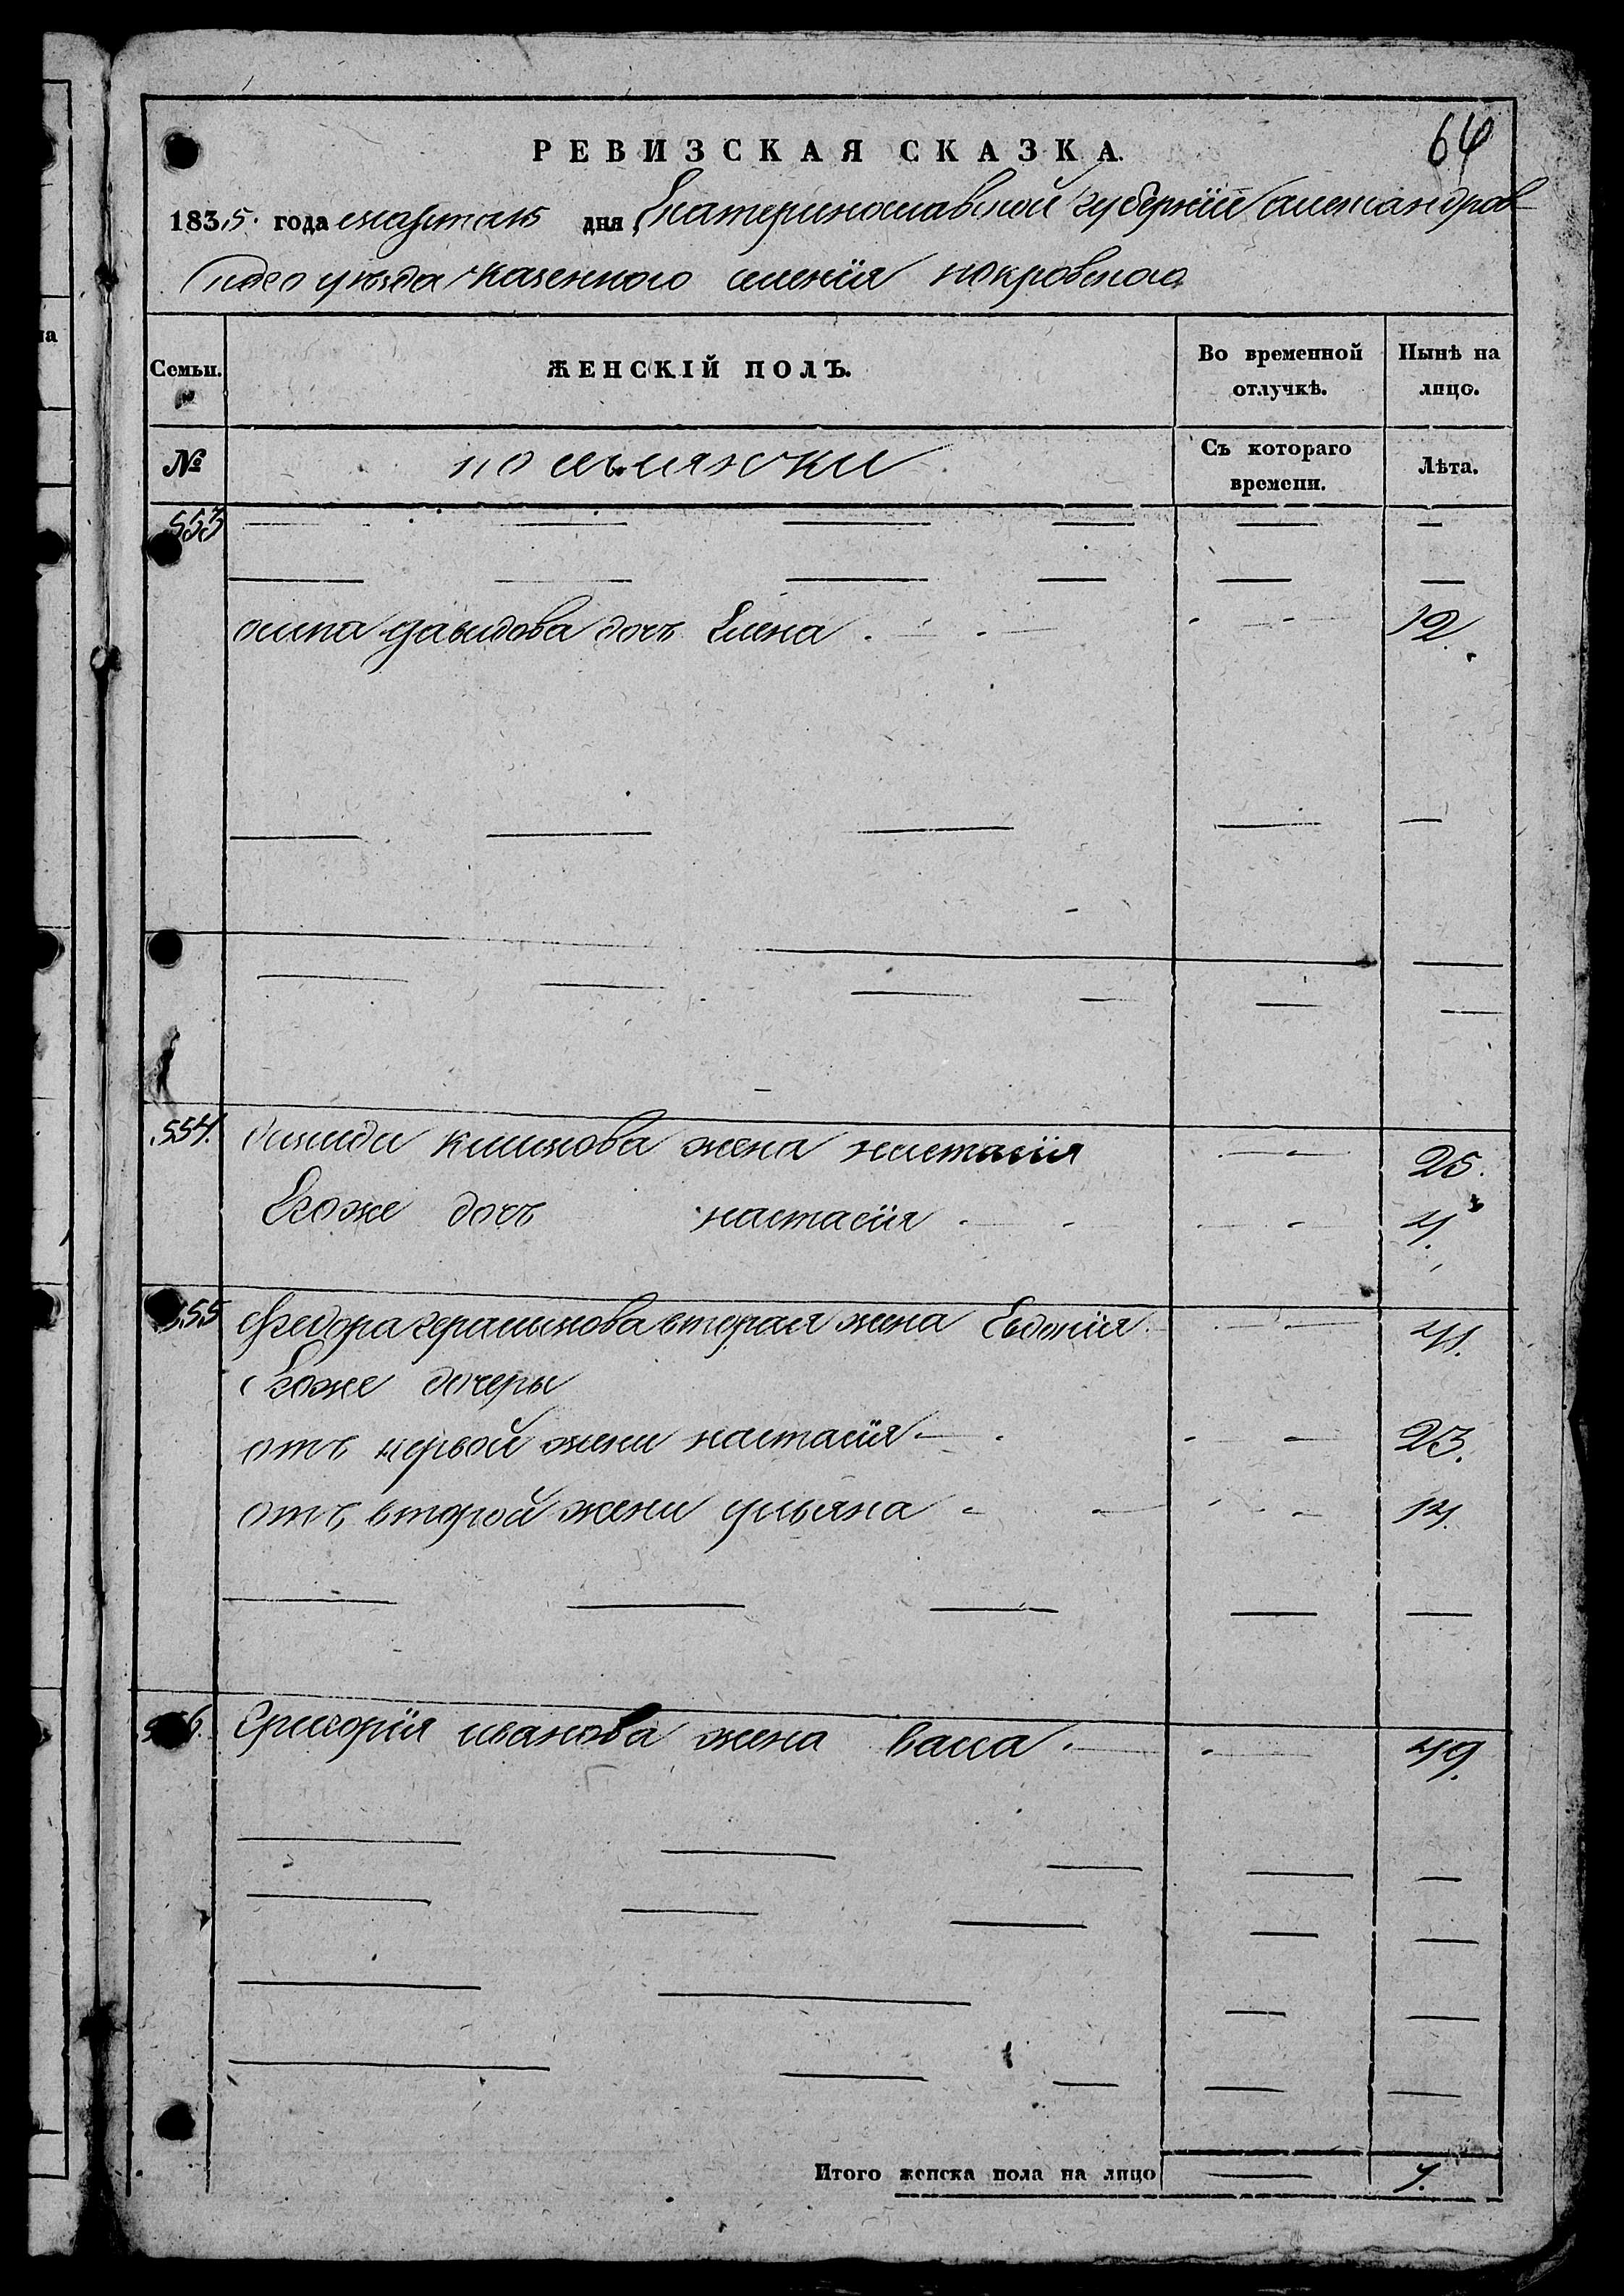 64
РЕВИЗСКАЯ СКАЗКА.
1835. года марта 15 дня Екатеринославской губернїи александров
скаго уезда казенного селенїя покровского
Семьи. ЖЕНСКІЙ ПОЛЪ. Во временной отлучкѣ. Нынѣ на лицо.
№ поселянски Съ котораго времени. Лѣта.
553 — — — — — —
— — — — — —
осипа давыдова дочь Елена . — . — . — . — 12.
— — — — —
— — — — — —
554. климова жена настасїя — — 25.
Егоже дочь настасїя . — - — . — 4.
555 федора герасимова вторая жена Евдокїя — — 41.
Егоже дочеры
отъ первой жены настасїя — . . — 23.
отъ второй жены ульяна - — . — 14.
— — — — —
556. Григорїя иванова жена васса . — . — 49.
— — — — —
— — — — —
— — — —
— — — — —
Итого женска пола на лицо — 7.
на